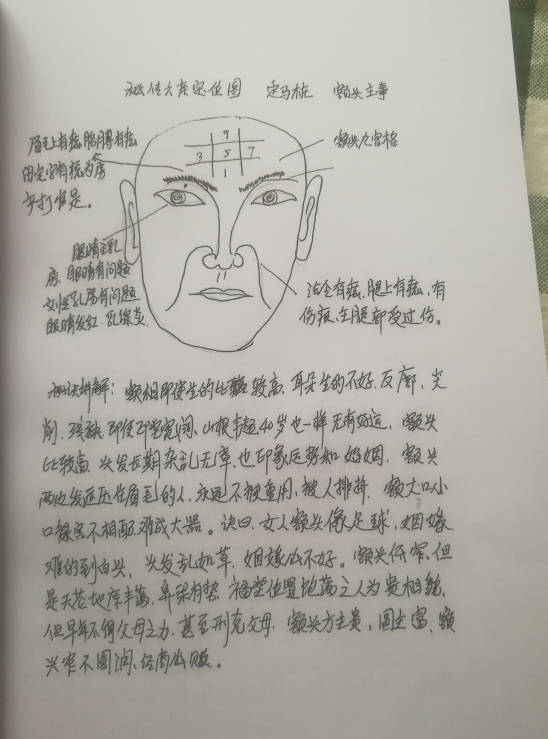 秘传大度定位图 定马桩 额头主事
9
3 5 7
1
额头九宫格
眉毛上有痣胳膊有痣
田宅宫有痣为房
产打官是。
眼睛主乳
房,眼睛有问题
乳房有问题
眼睛发红.乳腺炎.
法令有痣.腿上有痣.有
伤痕.主腿部受过伤。
秘诀讲解:额相即使生的比较高.耳朵生的不好.反廓,尖
削.残缺.即使印堂宽阔.山根丰隆40岁也一样无有好运,额头
比较高.头发长期杂乱无章.也印象运势和婚姻.额头
两边发压住眉毛的人.永远不被重用.被人排挤.额大口小
口额宫不相配.难成大器。诀曰.女人额头像足球,姻缘
难的到白头,头发乱如草.姻缘山不好。额头低窄.但
是天苍地库丰满.鼻梁有势.福堂位置饱满之人为贵相貌,
但早年不得父母之力.甚至刑克父母.额头方主贵,圆主富.额
头窄不圆润.经商山败。